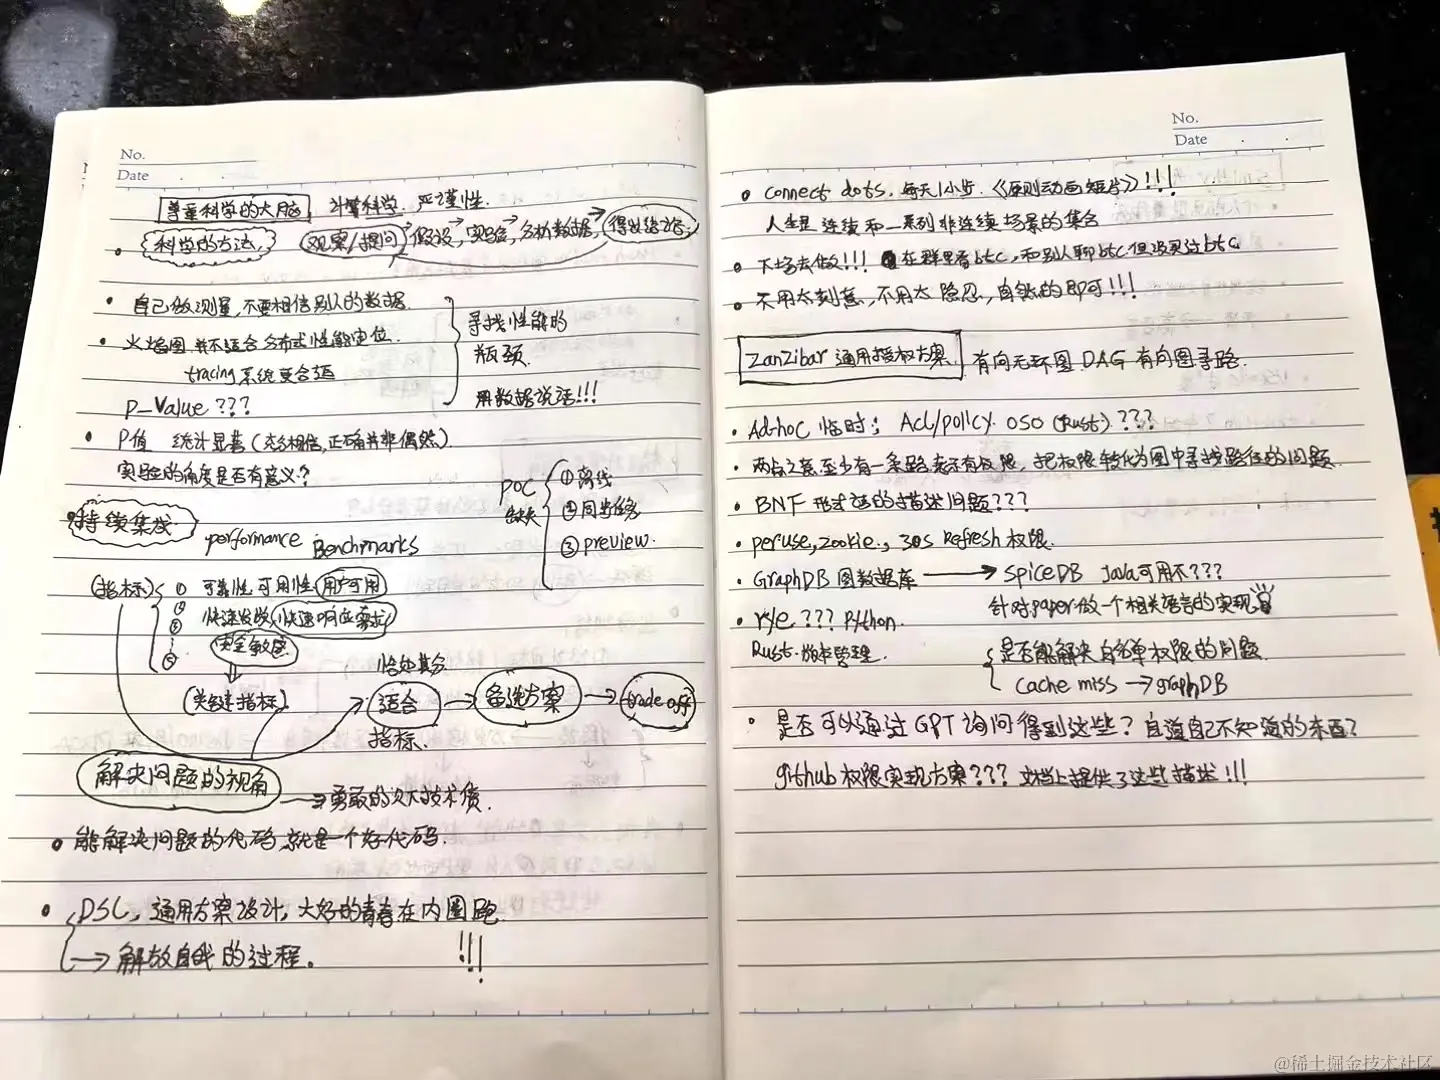 No.
Date
尊重科学的大脑 计算科学. 严谨性.
科学的方法, 观察/提问 → 假设, → 实验, → 分析数据, → 得出结论,
自己做测量, 不要相信别人的数据.
火焰图 并不适合 分布式性能定位.
tracing 系统更合适
寻找性能的
瓶颈
用数据说话!!!
P_Value ???
P值 统计显著 (正确并非偶然).
实验的角度是否有意义?
POC
缺失
① 离线
② 同步任务
③ preview.
持续集成
performance Benchmarks
(指标)
① 可靠性, 可用性 用户可用
② 快速发版, 快速响应需求
③ 安全敏感
⋮
⑤
(关键指标).
适合 → 备选方案 → trade off
指标.
解决问题的视角 → 勇敢的欠技术债.
能解决问题的代码, 就是一个好代码.
DSL, 通用方案设计, 大好的青春在内圈跑
→ 解放自我的过程. !!!
No.
Date
connect dots. 每天1小步. 《原则动画短片》!!!
人生是 连续和一系列非连续场景的集合
下场去做!!! 在群里看btc, 和别人聊btc. 但没买过btc
不用太刻意, 不用太隐忍, 自然的即可!!!
ZanZibar 通用授权方案. 有向无环图 DAG 有向图寻路.
Ad-hoc 临时; Acl/policy. OSO (Rust) ???
两点之间至少有一条路表示有权限, 把权限转化为图中寻找路径的问题.
BNF 形式语的描述问题???
peruse, zookie., 30s Refresh 权限.
GraphDB 图数据库 → SpiceDB Java可用不???
针对paper做一个相关语言的实现
rye ??? Python.
Rust. 版本管理.
是否能解决自定义权限的问题.
Cache miss → graphDB
是否可以通过GPT询问得到这些? 自道自己不知道的东西?
github 权限实现方案??? 文档上提供了这些描述!!!
@稀土掘金技术社区